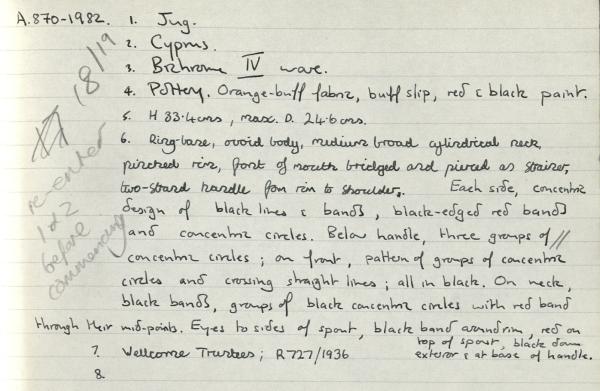 A.870-1982. 1. Jug.
2. Cyprus.
3. Bichrome IV ware.
4. Pottery. Orange-buff fabric, buff slip, red & black paint.
5. H 33.4cms, max. D. 24.6cms.
6. Ring-base, ovoid body, medium broad cylindrical neck,
pinched rim, front of mouth bridged and pierced as strainer,
two-strand handle from rim to shoulder. Each side, concentric
design of black lines & bands, black-edged red bands
and concentric circles. Below handle, three groups of //
concentric circles; on front, pattern of groups of concentric
circles and crossing straight lines; all in black. On neck,
black bands, groups of black concentric circles with red band
through their mid-points. Eyes to sides of spout, black band around rim, red on
top of spout, black down
exterior & at base of handle.
7. Wellcome Trustees; R727/1936
8.
18/19
re-enter
1 & 2
before
commencing